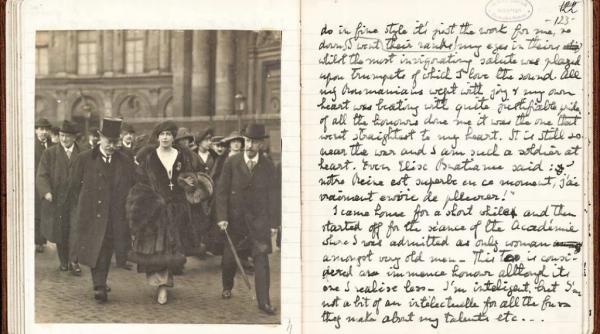 122
-123-
do in fine style it's just the work for me, so
down I went their ranks my eyes in theirs
whilst the most invigorating salute was played
upon trumpets of which I love the sound. All
my Roumanians wept with joy & my own
heart was beating with quite justifiable pride
of all the honours done me it was the one that
went straightest to my heart. It is still so
near the war and I am such a soldier at
heart. Even Elise Bratianu said :
notre Reine est superbe en ce moment, j'ai
vraiment envie de pleurer!"
I came home for a short while and then
started off for the séance of the Académie
where I was admitted as only woman
amongst very old men - This is consi-
dered an immence honour although its
one I realise less - I'm inteligent, but I'm
not a bit of an intelectuelle for all the fuss
they make about my talents etc....